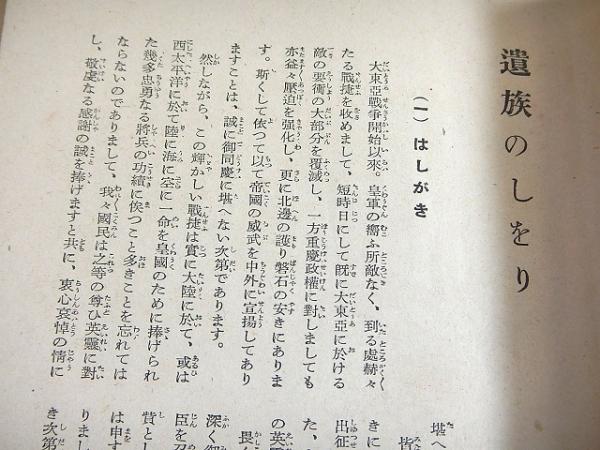 遺族のしをり
(一) はしがき
大東亞戰爭開始以來。皇軍の嚮ふ所敵なく、到る處赫々
たる戰捷を收めまして、短時日にして既に大東亞に於ける
敵の要衝の大部分を覆滅し、一方重慶政權に對しましても
亦益々壓迫を强化し、更に北邊の護り磐石の安きにありま
す。斯くして依つて以て帝國の威武を中外に宣揚してあり
ますことは、誠に御同慶に堪へない次第であります。
然しながら、この輝かしい戰捷は實に大陸に於て、或は
西太平洋に於て陸に海に空に一命を皇國のために捧げられ
た幾多忠勇なる將兵の功績に俟つこと多きことを忘れては
ならないのでありまして、我々國民は之等の尊ひ英靈に對
し、敬虔なる感謝の誠を捧げますと共に、衷心哀悼の情に
堪へ
皆
きに
出征
た、
の英
畏く
深く御
臣を
賛とし
は申す
りまし
き次第